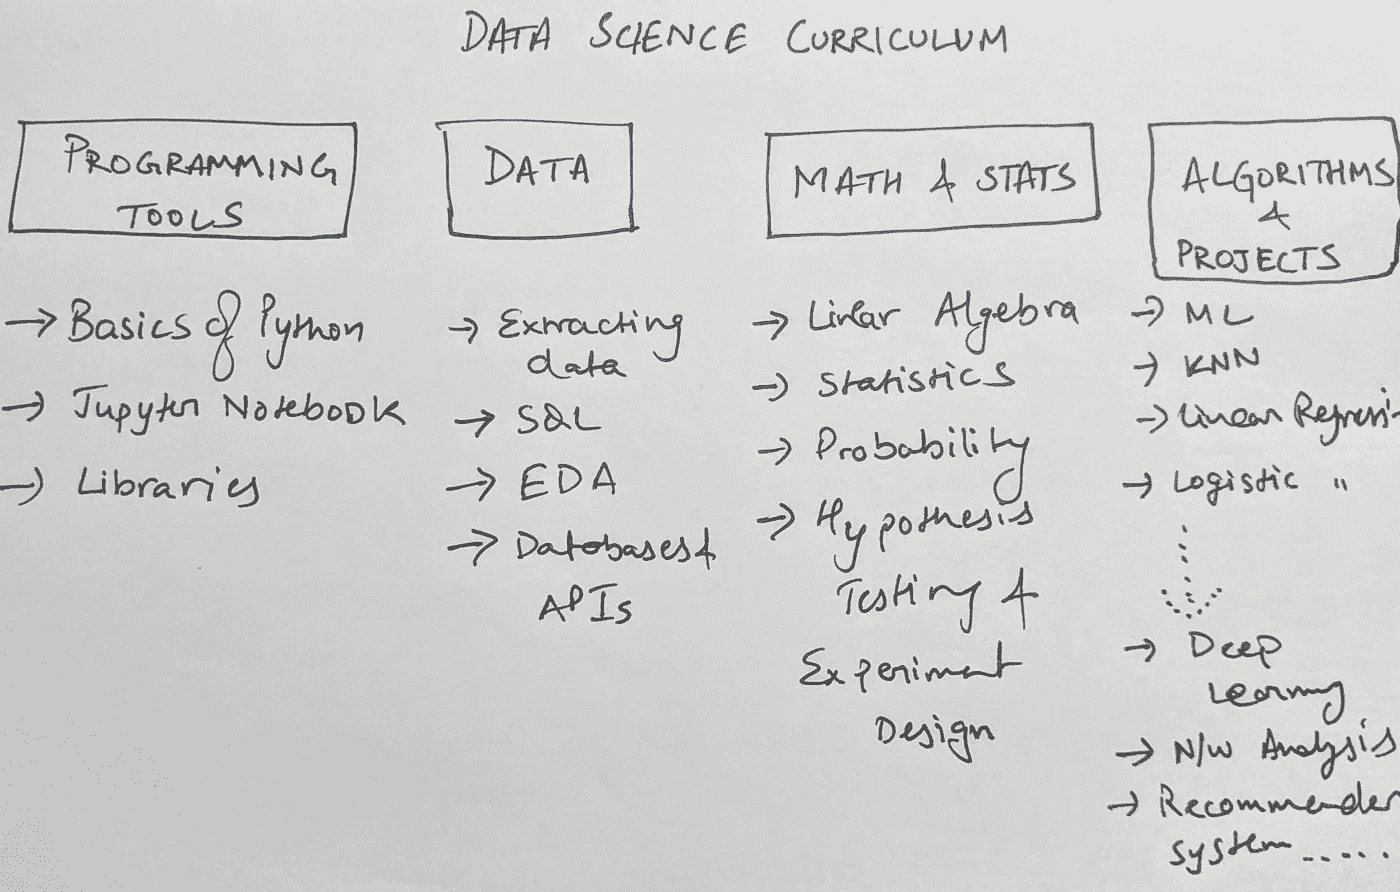 DATA SCIENCE CURRICULUM
PROGRAMMING
TOOLS
→ Basics of Python
→ Jupyter Notebook
→ Libraries
DATA
→ Extracting
data
→ SQL
→ EDA
→ Databases &
APIs
MATH & STATS
→ Linear Algebra
→ Statistics
→ Probability
→ Hypothesis
Testing &
Experiment
Design
ALGORITHMS
&
PROJECTS
→ ML
→ KNN
→ Linear Regressi
→ Logistic "
→ Deep
Learning
→ N/W Analysis
→ Recommender
system ......